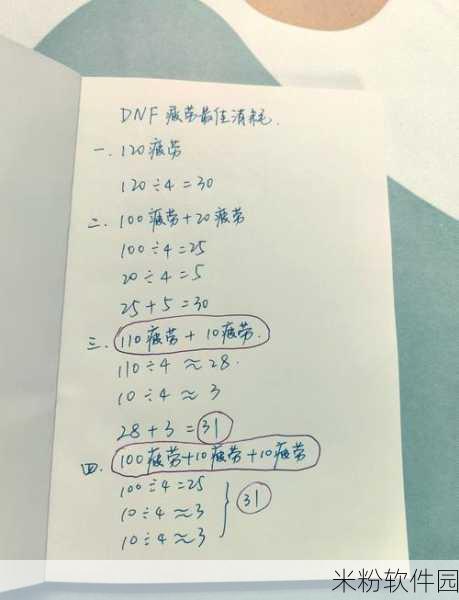 DNF 疲劳最佳消耗.
一. 120疲劳
120÷4=30
二. 100疲劳+20疲劳
100÷4=25
20÷4=5
25+5=30
三. 110疲劳+10疲劳.
110÷4≈28.
10÷4≈3
28+3=31
四. 100疲劳+10疲劳+10疲劳
100÷4=25
10÷4≈3 31
10÷4≈3
米粉软件园